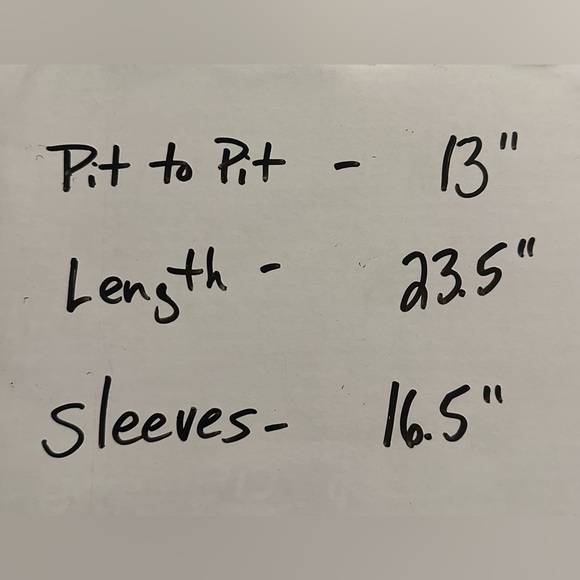 Pit to Pit - 13"
Length - 23.5"
Sleeves- 16.5"